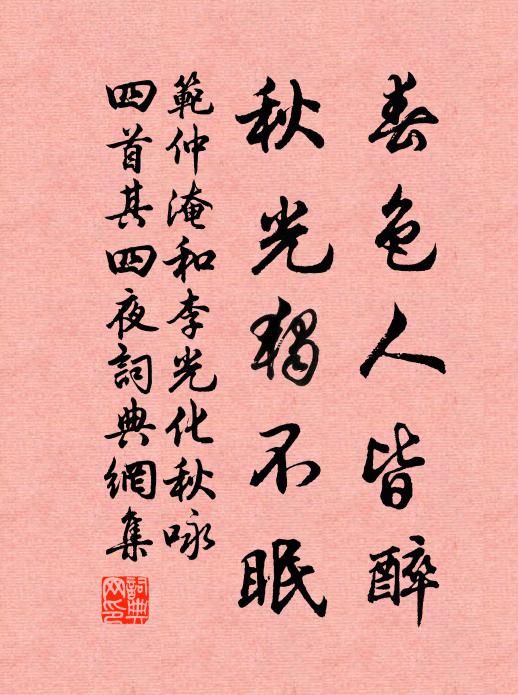 春色人皆醉
秋光獨不眠
範仲淹和李光化秋咏
四首其四夜詞典網集
詞典網印